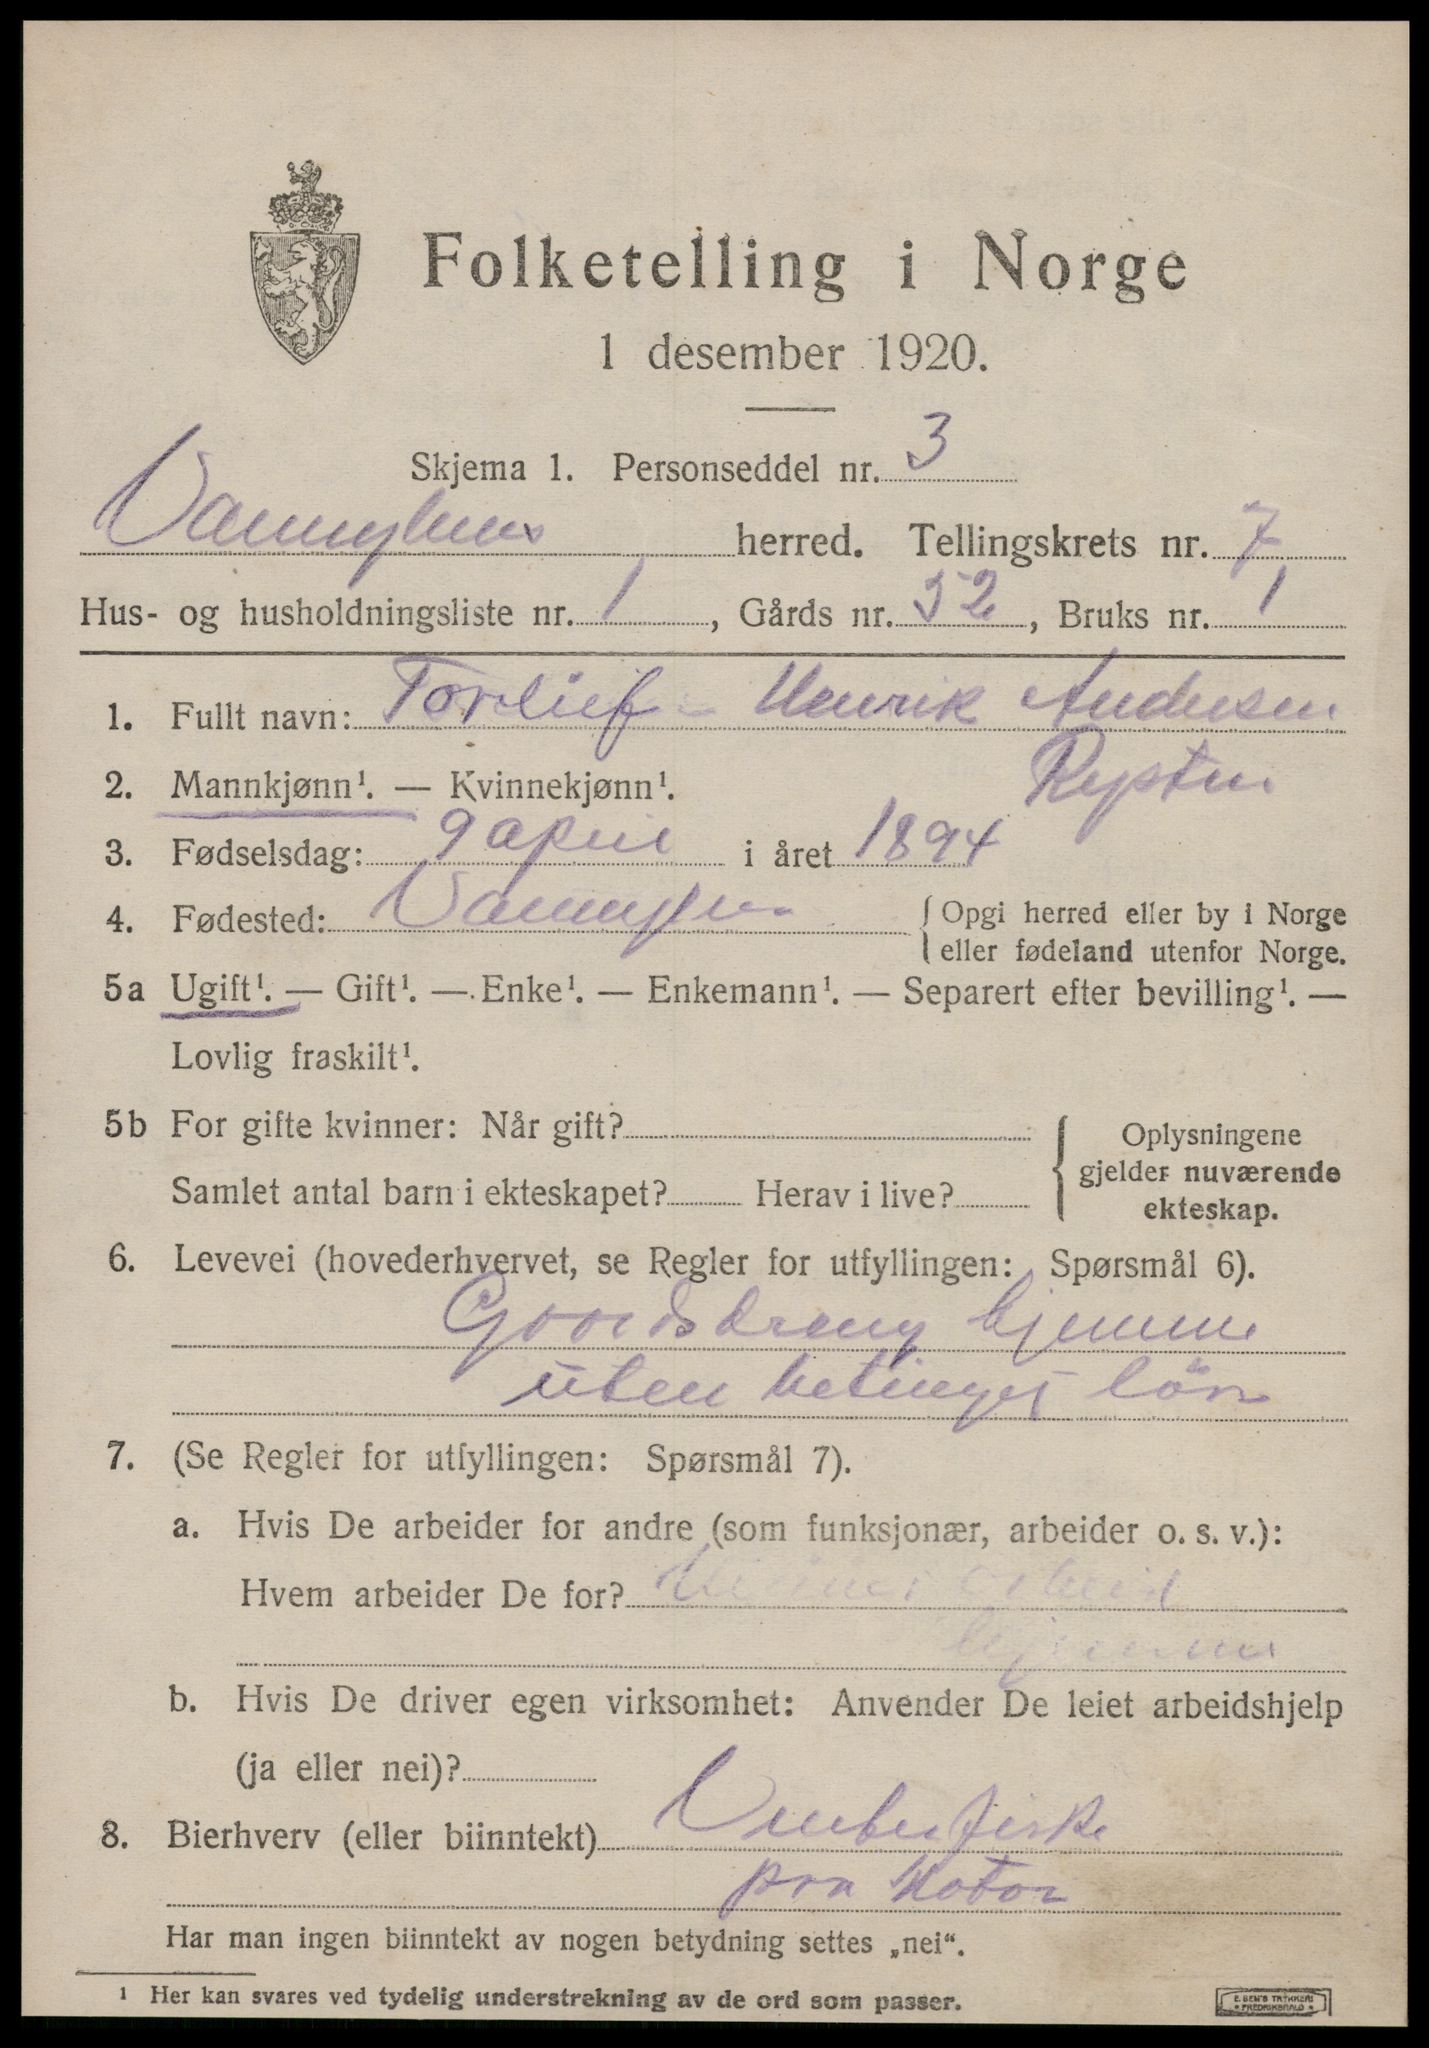 Folketelling i Norge
1 desember 1920.
Skjema 1. Personseddel nr. 3
herred. Tellingskrets nr. 7
Hus- og husholdningsliste nr. 1, Gårds nr. 52, Bruks nr. 1
1. Fullt navn: Torleif Henrik Andersen
2. Mannkjønn¹. — Kvinnekjønn¹.
3. Fødselsdag: 9 april i året 1894
4. Fødested: { Opgi herred eller by i Norge
eller fødeland utenfor Norge.
5a Ugift¹. — Gift¹. — Enke¹. — Enkemann¹. — Separert efter bevilling¹. —
Lovlig fraskilt¹.
5b For gifte kvinner: Når gift? { Oplysningene
gjelder nuværende
Samlet antal barn i ekteskapet? Herav i live?
ekteskap.
6. Levevei (hovederhvervet, se Regler for utfyllingen: Spørsmål 6).
Goordsdreng hjemme
uten betinget lön
7. (Se Regler for utfyllingen: Spørsmål 7).
a. Hvis De arbeider for andre (som funksjonær, arbeider o. s. v.):
Hvem arbeider De for? arbeid
hjemme
b. Hvis De driver egen virksomhet: Anvender De leiet arbeidshjelp
(ja eller nei)?
8. Bierhverv (eller biinntekt) Vinterfiske
paa Motor
Har man ingen biinntekt av nogen betydning settes „nei“.
1 Her kan svares ved tydelig understrekning av de ord som passer.
FREDRIKSHALD